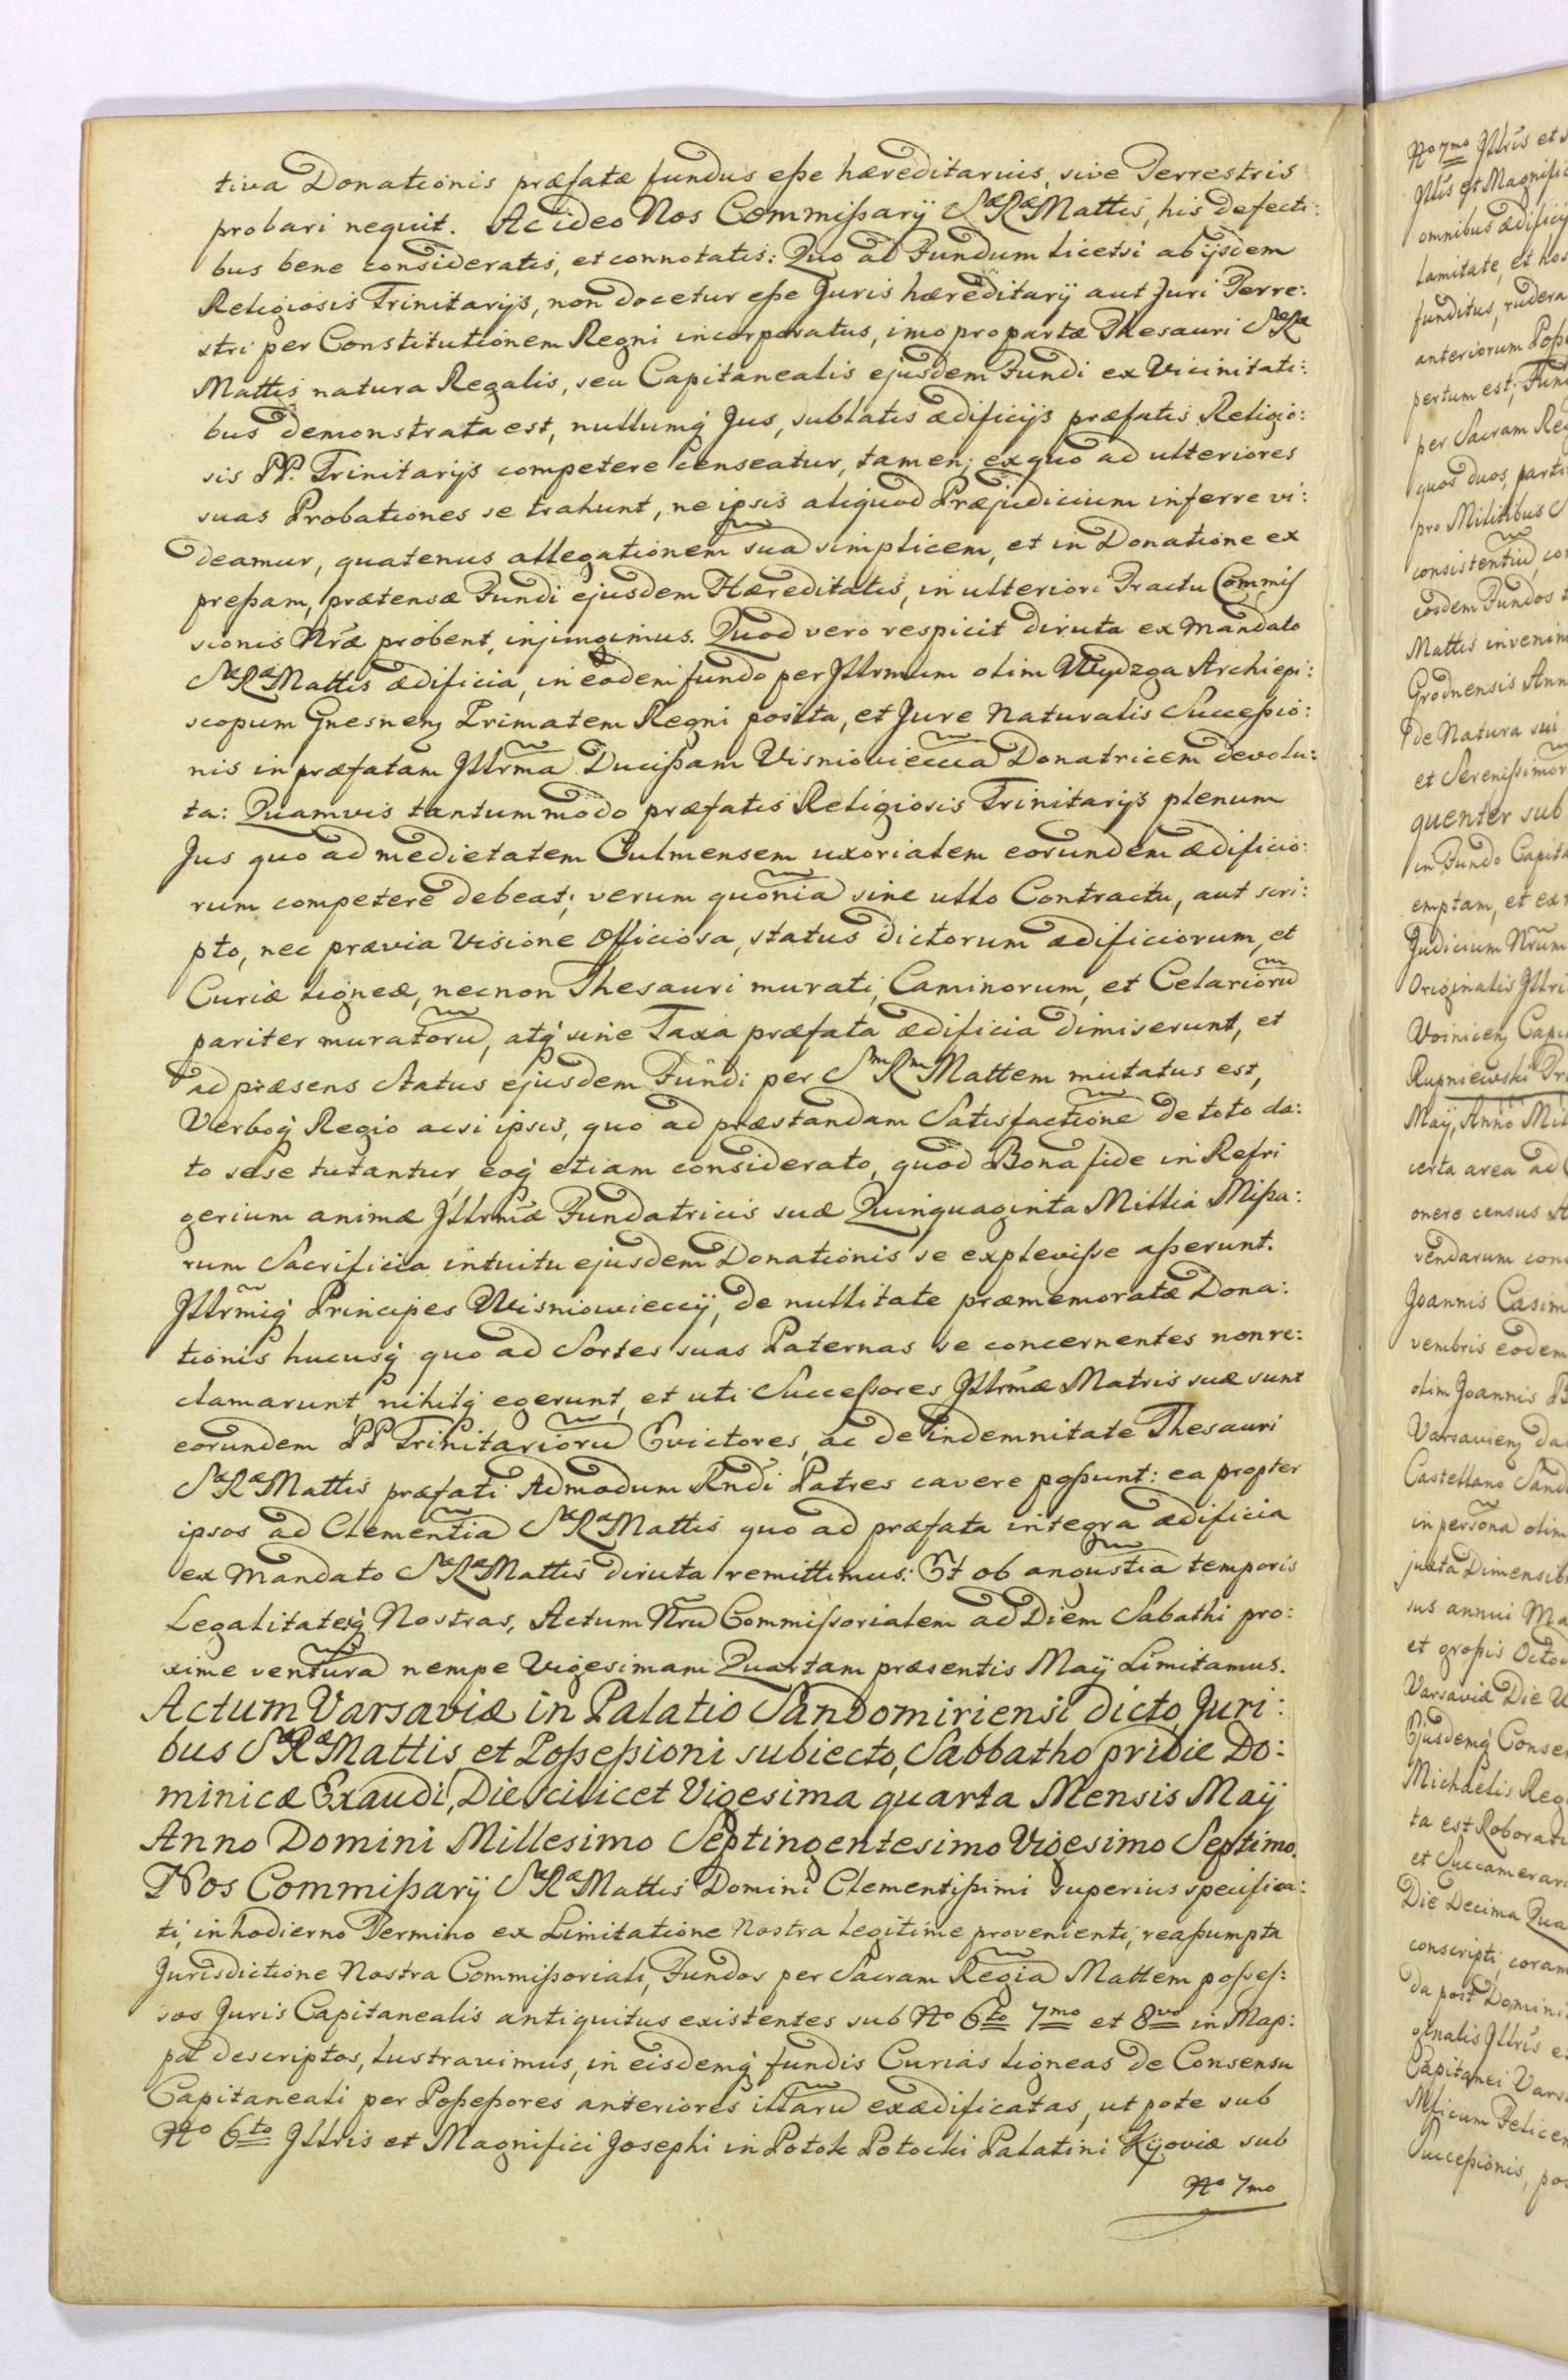 tiva Donationis præfatæ fundus eße hæreditarius, sive Terrestris
probari nequit. Ac ideo Nos Commißarÿ SæRæMattis, his Defecti:
bus bene consideratis, et connotatis: Quo ad Fundum licetsi ab ijsdem
Religiosis Trinitarijs, non docetur eße Juris hæreditarÿ aut Juri Terre:
stri per Constitutionem Regni incorporatus, imo pro parte Thesauri SæRæ
Mattis natura Regalis, seu Capitanealis ejusdem Fundi ex Vicinitati:
bus demonstrata est, nullumq́ Jus, sublatis ædificijs præfatis Religio:
sis PP. Trinitarijs competere censeatur, tamen; exquo ad ulteriores
suas Probationes se trahunt, ne ipsis aliquod Præjudicium inferre vi:
deamur, quatenus allegationem sua͂ simplicem, et in Donatione ex
preßam, prætensæ Fundi ejusdem Hæreditatis, in ulteriori Tractu Commis
sionis Nr͂æ probent, injungimus. Quod vero respicit diruta ex Mandato
SæRæMattis ædificia, in eodem fundo per Jllrmum olim Wydzga Archiepi:
scopum Gnesnen̄ Primatem Regni posita, et Jure Naturalis Succeßio:
nis in præfatam Jllrm͂a Ducißam Visniovieccia͂ Donatricem devolu:
ta: Quamvis tantummodo præfatis Religiosis Trinitarijs plenum
Jus quo ad medietatem Culmensem uxorialem eorundem ædificio:
rum competere debeat; verum quonia͂ sine ullo Contractu, aut scri:
pto, nec prævia Visione Officiosa, status dictorum ædificiorum, et
Curiæ ligneæ, necnon Thesauri murati, Caminorum, et Celarioru͂
pariter muratoru͂, atq́ sine Taxa præfata ædificia dimiserunt, et
ad præsens Status ejusdem Fundi per SmRmMattem mutatus est,
Verboq́ Regio acsi ipsis, quo ad præstandam Satisfactione͂ de toto da:
to sese tutantur eoq́ etiam considerato, quod Bona fide in Refri
gerium animæ Jllrm͂æ Fundatricis suæ Quinquaginta Millia Mißa:
rum Sacrificia intuitu ejusdem Donationis se expleviße aßerunt.
Jllrm͂iq́ Principes Wisniowieccÿ, de nullitate præmemoratæ Dona:
tionis hucusq́ quo ad Sortes suas Paternas se concernentes non re:
clamarunt, nihilq́ egerunt, et uti Succeßores Jllrm͂æ Matris suæ sunt
eorundem PP Trinitarioru͂ Evictores, ac de indemnitate Thesauri
SæRæMattis, præfati Admodum Rndi Patres cavere poßunt: ea propter
ipsos ad Clementia͂ SæRæMattis quo ad præfata integra ædificia
ex Mandato SæRæMattis diruta remittimus: Et ob angustia͂ temporis
Legalitatesq́ Nostras, Actum Nr͂u Commißorialem ad Diem Sabathi pro:
xime ventura͂ nempe Vigesimam Quartam præsentis Maÿ Limitamus.
Actum Varsaviæ in Palatio Sandomiriensi dicto, Juri:
bus SæRæMattis et Poßeßioni subiecto, Sabbatho pridie Do:
minicæ Exaudi, Die scilicet Vigesima quarta Mensis Maÿ
Anno Domini Millesimo Septingentesimo Vigesimo Septimo.
Nos Commißarÿ SæRæMattis Domini Clementißimi superius specifica:
ti, in hodierno Termino ex Limitatione Nostra legitime provenienti, reaßumpta
Jurisdictione Nostra Commißoriali, Fundos per Sacram Regia͂ Mattem posseß:
sos Juris Capitanealis antiquitus existentes sub No 6to 7mo et 8vo in Map:
pa descriptos, lustravimus, in eisdemq́ fundis Curias ligneas de Consensu
Capitaneali per Poßeßores anteriores illaru͂ exædificatas, ut pote sub
No 6to Jllris et Magnifici Josephi in Potok Potocki Palatini Kijoviæ sub
No 7mo
No 7mo Jllris et
Jllis et Magnific
omnibus ædificij
lamitate, et hos
funditus, rudera
anteriorum Poß
pertum est; Fun
per Sacram Re
quos duos, parti
pro Militibus S
consistentiu͂, co
eosdem Fundos
Mattis invenim
Grodnensis Ann
de Natura sui
et Serenißimor
quenter sub
in Fundo Capita
emptam, et ex
Judicium Nr͂um
Originalis Jllri
Woinicen̄ Capi
Rupniewski
Maÿ, Anno Mil
certa area ad
onere census
vendarum con
Joannis Casim
vembris eodem
olim Joannis
Varsavien̄ da
Castellano Sand
in persona͂ olim
juxta Dimensi
sus annui Ma
et großis Octo
Varsaviæ Die
Ejusdemq́ Conse
Michaelis Reg
ta est Roborati
et Succamerari
Die Decima Qua
conscripti, coram
da post Domini
ginalis Jllris e
Capitanei Vars
Mficum Felicem
Succeßionis, po